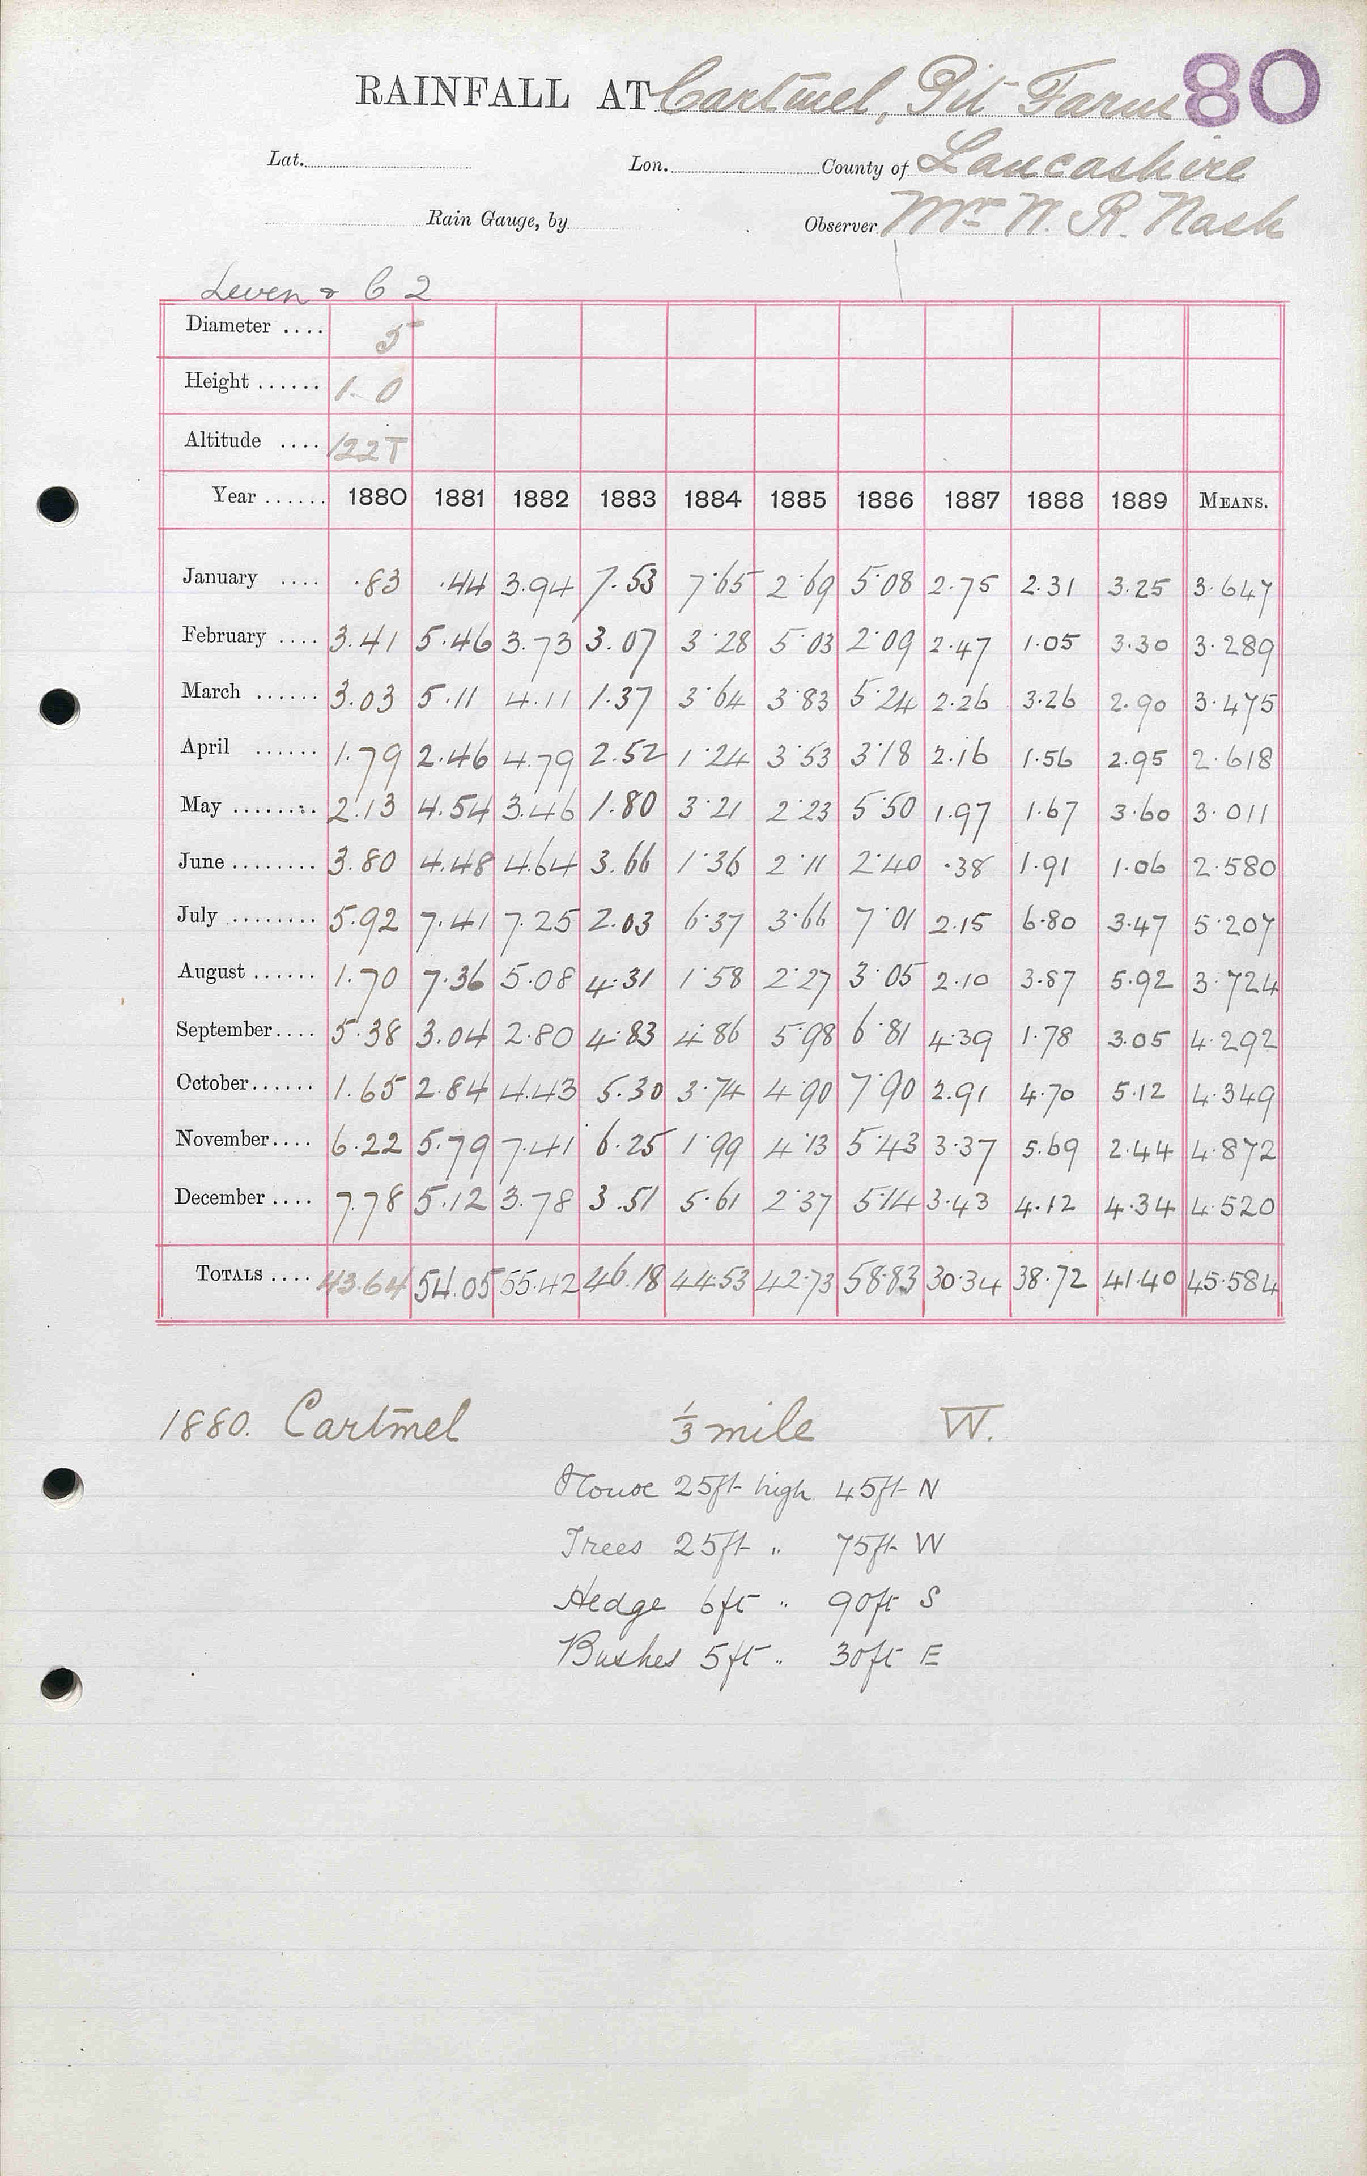 RAINFALL AT Cartmel, Pit Farm 80
Lat. Lon. County of Lancashire
Rain Gauge, by Observer Mr W. R. Nash
Leven & C 2
Diameter .... 5
Height ...... 1. 0
Altitude .... 122T
Year ...... 1880 1881 1882 1883 1884 1885 1886 1887 1888 1889 MEANS.
January .... .83 .44 3.94 7.53 7.65 2.69 5.08 2.75 2.31 3.25 3.647
February .... 3.41 5.46 3.73 3.07 3.28 5.03 2.09 2.47 1.05 3.30 3.289
March ...... 3.03 5.11 4.11 1.37 3.64 3.83 5.24 2.26 3.26 2.90 3.475
April ...... 1.79 2.46 4.79 2.52 1.24 3.53 3.18 2.16 1.56 2.95 2.618
May ........ 2.13 4.54 3.46 1.80 3.21 2.23 5.50 1.97 1.67 3.60 3.011
June ........ 3.80 4.48 4.64 3.66 1.36 2.11 2.40 .38 1.91 1.06 2.580
July ........ 5.92 7.41 7.25 2.03 6.37 3.66 7.01 2.15 6.80 3.47 5.207
August ...... 1.70 7.36 5.08 4.31 1.58 2.27 3.05 2.10 3.87 5.92 3.724
September.... 5.38 3.04 2.80 4.83 4.86 5.98 6.81 4.39 1.78 3.05 4.292
October...... 1.65 2.84 4.43 5.30 3.74 4.90 7.90 2.91 4.70 5.12 4.349
November.... 6.22 5.79 7.41 6.25 1.99 4.13 5.43 3.37 5.69 2.44 4.872
December .... 7.78 5.12 3.78 3.51 5.61 2.37 5.14 3.43 4.12 4.34 4.520
TOTALS .... 43.64 54.05 55.42 46.18 44.53 42.73 58.83 30.34 38.72 41.40 45.584
1880. Cartmel 1/3 mile W.
House 25ft high 45ft N
Trees 25ft " 75ft W
Hedge 6ft " 90ft S
Bushes 5ft " 30ft E